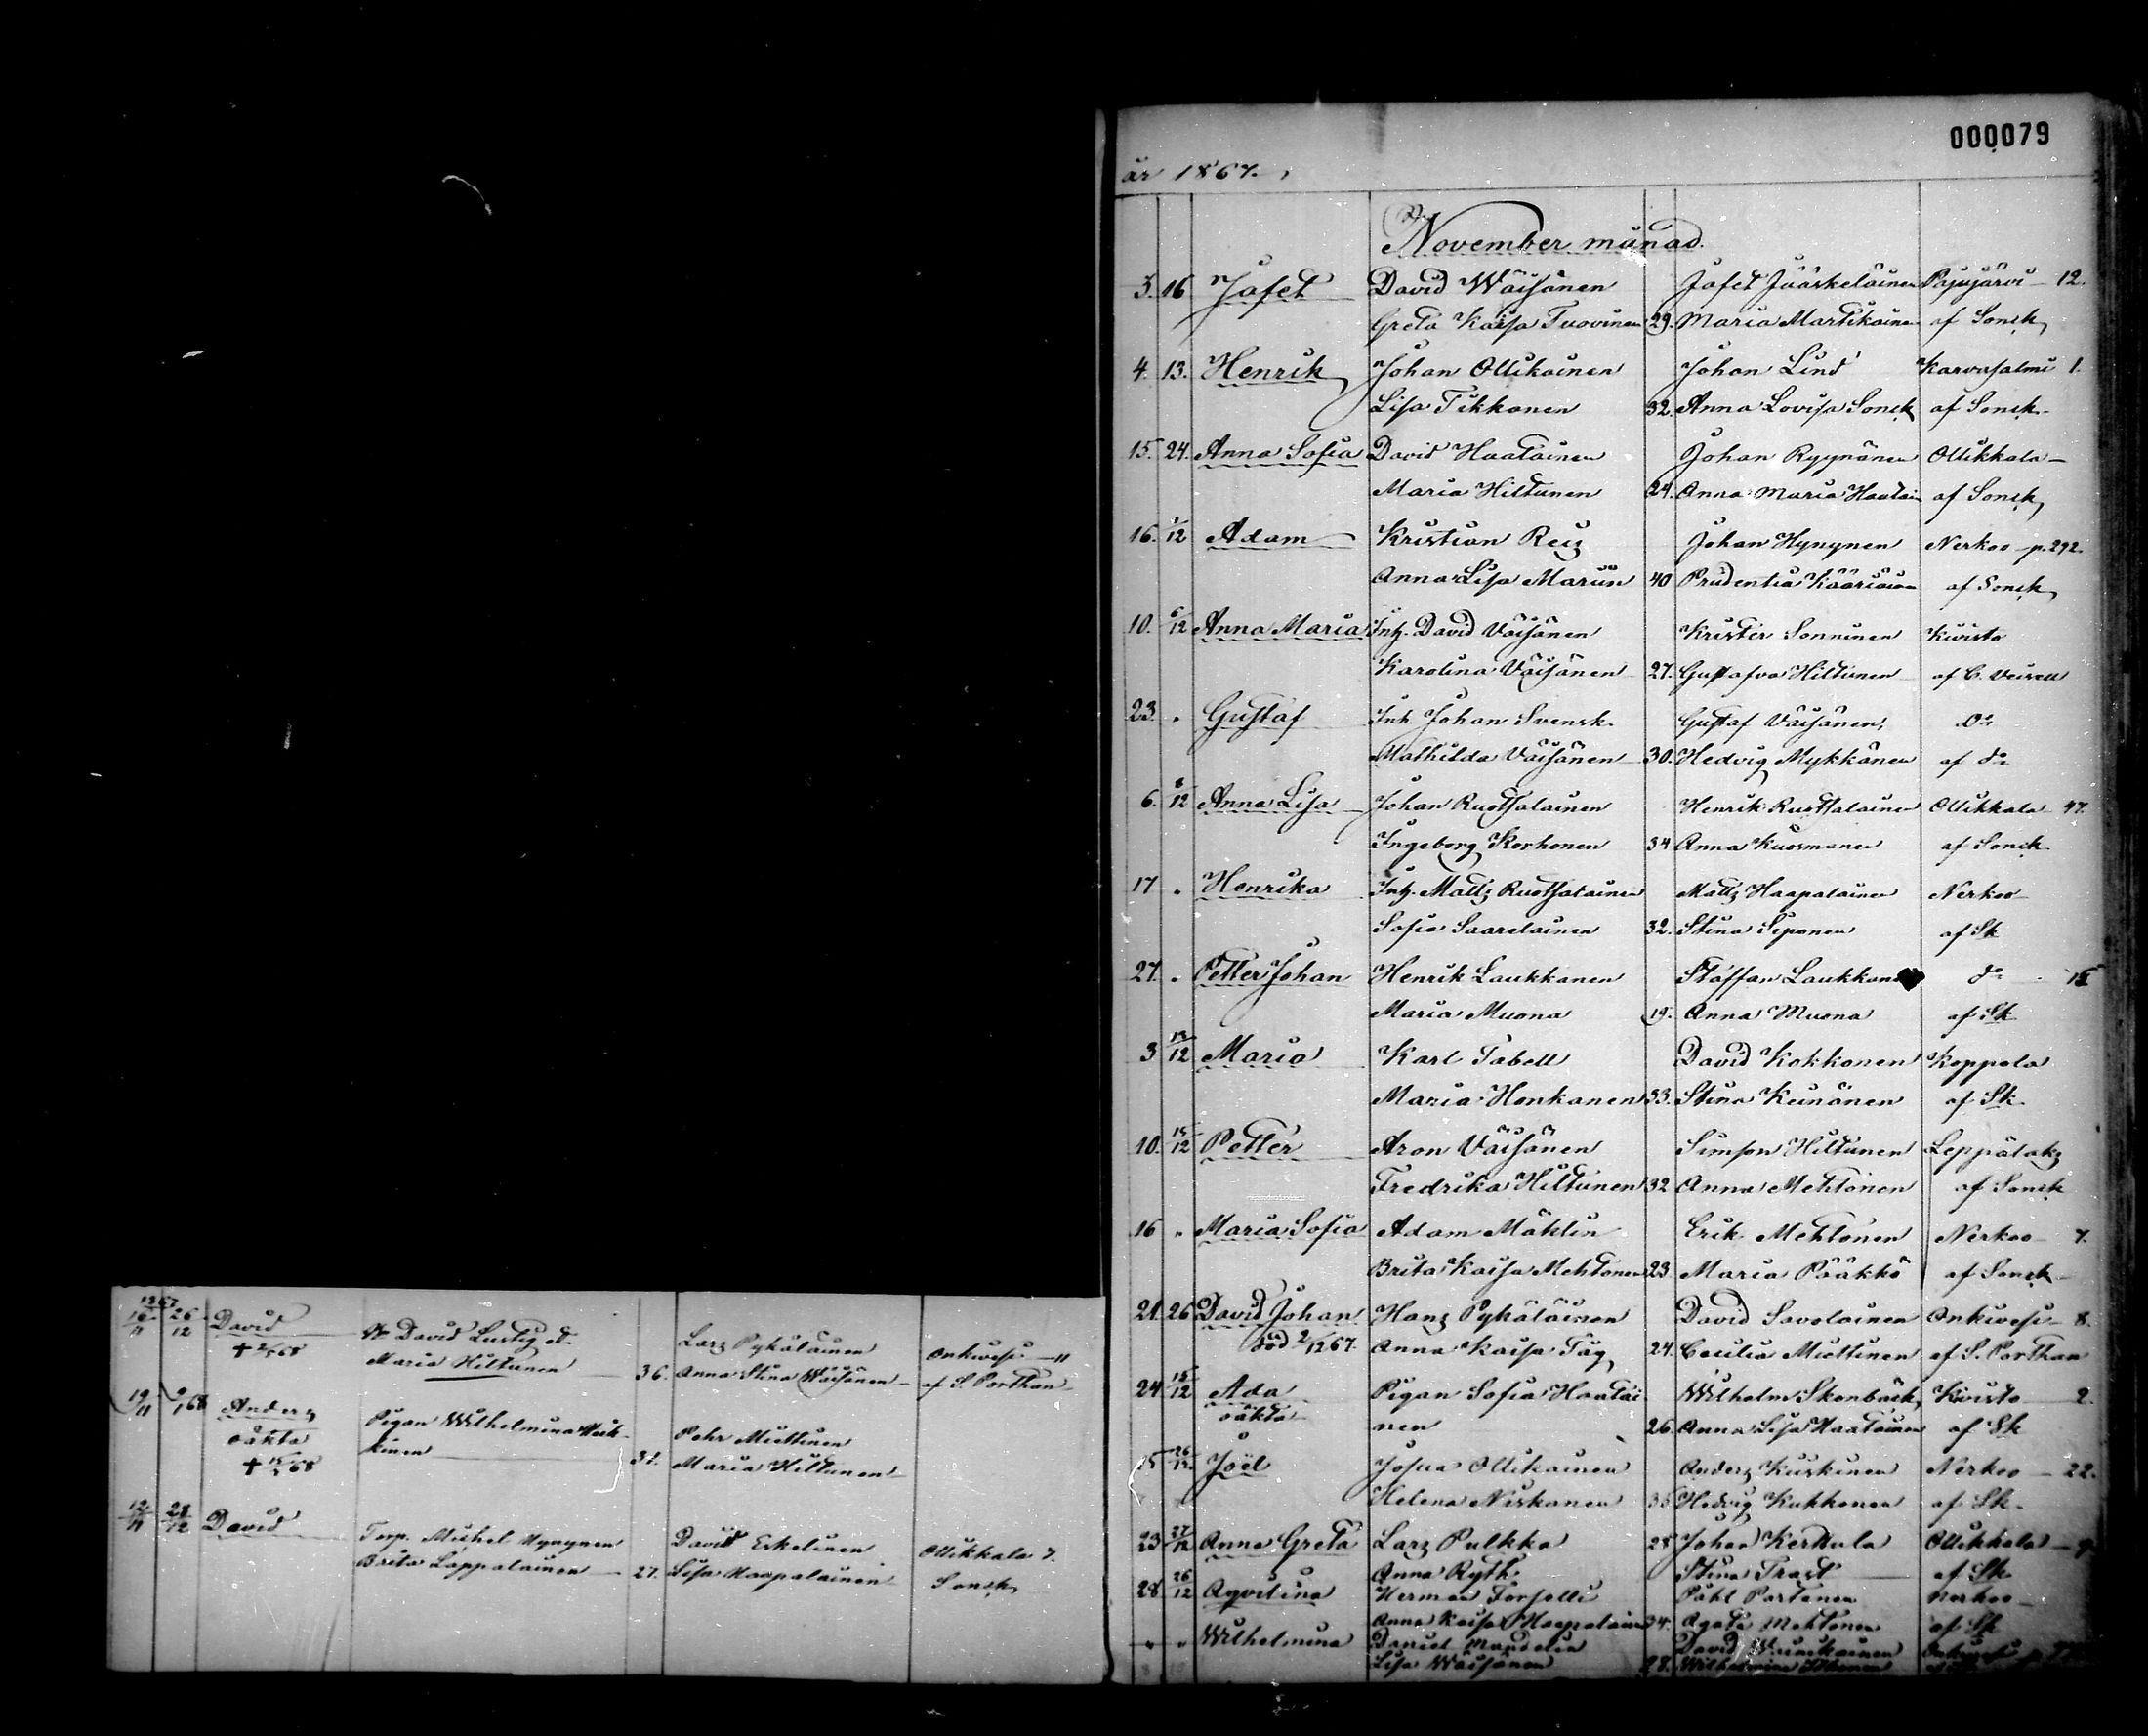 000079
år 1867.
November månad.
3. 16 Jafet David Wäisänen Jafet Jääskeläinen Pajujärvi 12.
Greta Kaisa Tuovinen 29. Maria Martikainen af Sonck
4. 13. Henrik Johan Ollikainen Johan Lind Karvasalmi 1.
Lisa Tikkanen 32. Anna Lovisa Sonck af Sonck
15. 24. Anna Sofia David Haatainen Johan Ryynänen Ollikkala
Maria Hiltunen 24. Anna Maria Haatai af Sonck
16. 1/12 Adam Kristian Johan Hynynen Nerkoo p. 292.
Anna Lisa 40 Prudentia Kääriäinen af Sonck
10. 6/12 Anna Maria Inh. David Väisänen Krister Sonninen Kivisto
Karolina Väisänen 27. Gustafva Hiltunen af C.
23. " Gustaf Inh. Johan Svensk Gustaf Väisänen do
Mathilda Väisänen 30. Hedvig Mykkänen af do
6. 8/12 Anna Lisa Johan Ruotsalainen Henrik Ruotsalainen Ollikkala 47.
Ingeborg Korhonen 34 Anna Kuosmanen af Sonck
17 " Henrika Inh. Matts Ruotsalainen Matts Haapalainen Nerkoo
Sofia Saarelainen 32. Stina Seponen af Sk
27. " Petter Johan Henrik Laukkanen Staffan Laukkan do 15
Maria Muona 19. Anna Muona af Sk
3 13/12 Maria Karl Tabell David Kokkonen Koppola
Maria Honkanen 33. Stina Keinänen af Sk
10. 15/12 Petter Aron Väisänen Simson Hiltunen Leppälaks
Fredrika Hiltunen 32 Anna Mehtönen af Sonck
16 " Maria Sofia Adam Mäklin Erik Mehtonen Nerkoo 7.
Brita Kaisa Mehtonen 23 Maria Pääkkö af Sonck
21. 26 David Johan Hans Pykäläinen David Savolainen Onkivesi 8.
död 2/12 67. Anna Kaisa Täg 24. Cecilia Miettinen af S. Porthan
24 15/12 Ada Pigan Sofia Haatai Wilhelm Skonbäck Kivisto 2.
oäkta nen 26. Anna Lisa Haatainen af Sk
15 26/12 Joël Josua Ollikainen Anders Kiiskinen Nerkoo 22.
Helena Niskanen 35 Hedvig Kukkonen af Sk
23 27/12 Anna Greta Lars Pulkka 28 Johan Kerkula Ollikkala 9
Anna Ryth Stina Trast af Sk
28 26/12 Agvilina Herman Forselli Påhl Partanen Nerkoo
Anna Kaisa Haapalain 24. Agata Mehtonen af Sk
" " Wilhelmina Daniel Mandelin David Onkivesi
Lisa Wäisänen 28. Wilhelmina
1867
16/11 26/12 David David Lustig Lars Pykäläinen Onkivesi 11
† 2/1 68 Maria Hiltunen 36. Anna Stina Wäisänen af S. Porthan
19/11 9/1 68 Anders Pigan Wilhelmina Pehr Miettinen
oäkta kinen 31. Maria Hiltunen
† 68
12/11 28/12 David Torp. Michel Hynynen David Eskelinen Ollikkala 7.
Brita Lappalainen 27. Lisa Haapalainen Sonck